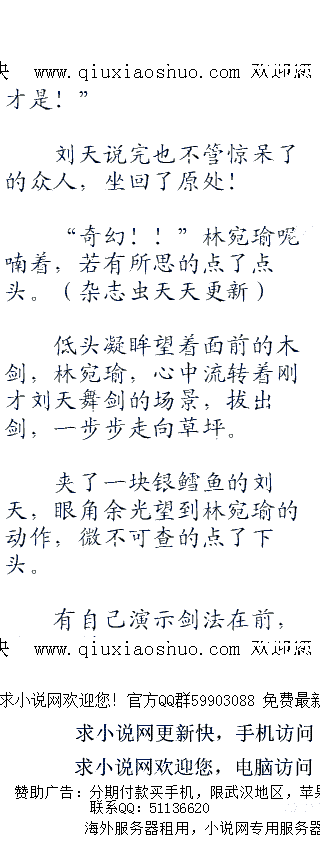 快 www.qiuxiaoshuo.com 欢迎您
才是！”
刘天说完也不管惊呆了
的众人，坐回了原处！
“奇幻！！”林宛瑜呢
喃着，若有所思的点了点
头。（杂志虫天天更新）
低头凝眸望着面前的木
剑，林宛瑜，心中流转着刚
才刘天舞剑的场景，拔出
剑，一步步走向草坪。
夹了一块银鳕鱼的刘
天，眼角余光望到林宛瑜的
动作，微不可查的点了下
头。
有自己演示剑法在前，
快 www.qiuxiaoshuo.com 欢迎您
求小说网欢迎您！官方QQ群59903088 免费最新
求小说网更新快，手机访问
求小说网欢迎您，电脑访问
赞助广告：分期付款买手机，限武汉地区，苹果
联系QQ：51136620
海外服务器租用，小说网专用服务器